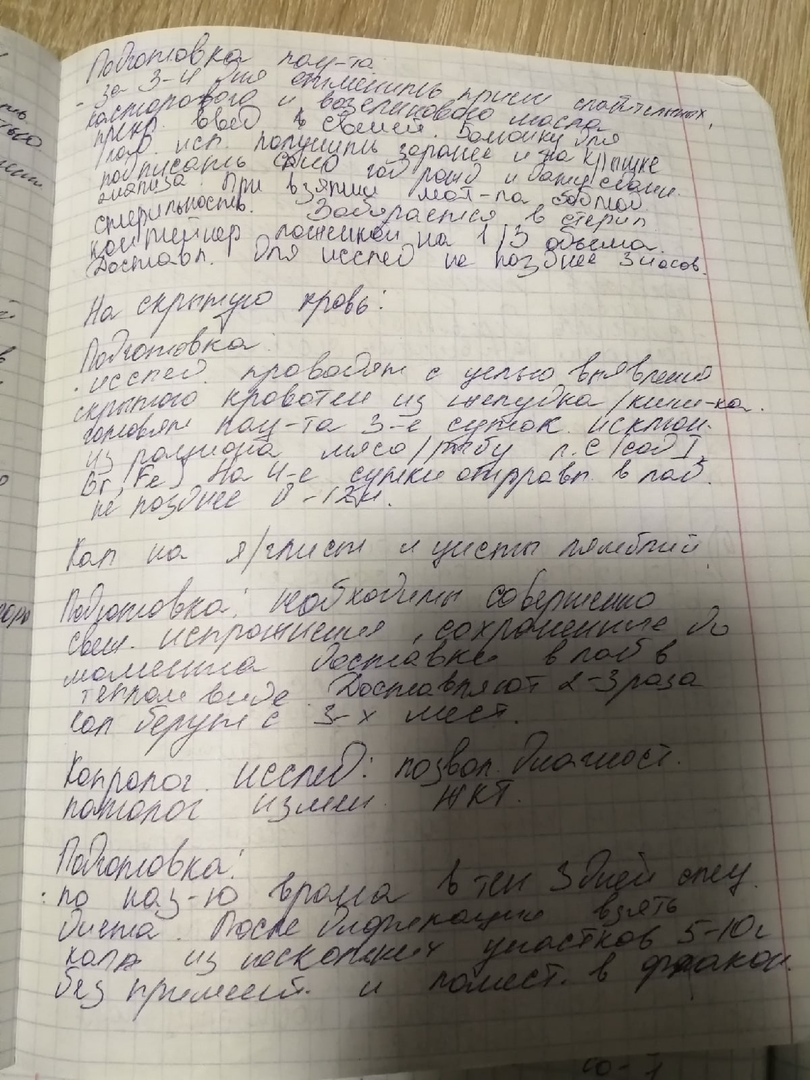 Подготовка пац-та:
- за 3-4 дня отменить прием слабительных,
касторового и вазелинового масла,
прекр. ввод. в свечей. Баночку для
лаб. исп. получить заранее и на крышке
подписать
анализа. При взятии мат-ла соблюд
стерильность. Забирается в стерил
контейнер ложечкой на 1/3 объема.
Доставл. для исслед не позднее 3 часов.
На скрытую кровь:
Подготовка:
. исслед. проводят с целью выявления
скрытого кровотеч из желудка/кишеч-ка.
готовят пац-та 3-е суток. исключ.
из рациона мясо/рыбу л.с (сод I,
Br, Fe) На 4-е сутки отправл. в лаб.
не позднее 8-12ч.
Кал на я/глист и цисты лямблий
Подготовка: необходимы совершенно
свеж. испражнения, сохраненные до
момента доставки в лаб в
теплом виде. Доставляют 2-3 раза
кал берут с 3-х мест.
Копролог. исслед: позвол. диагност.
патолог измен. ЖКТ.
Подготовка:
: по наз-ю врача в теч 3 дней спец.
диета. После дефекации взять
кала из нескольких участков 5-10г
без примесей. и помест. в флакон.